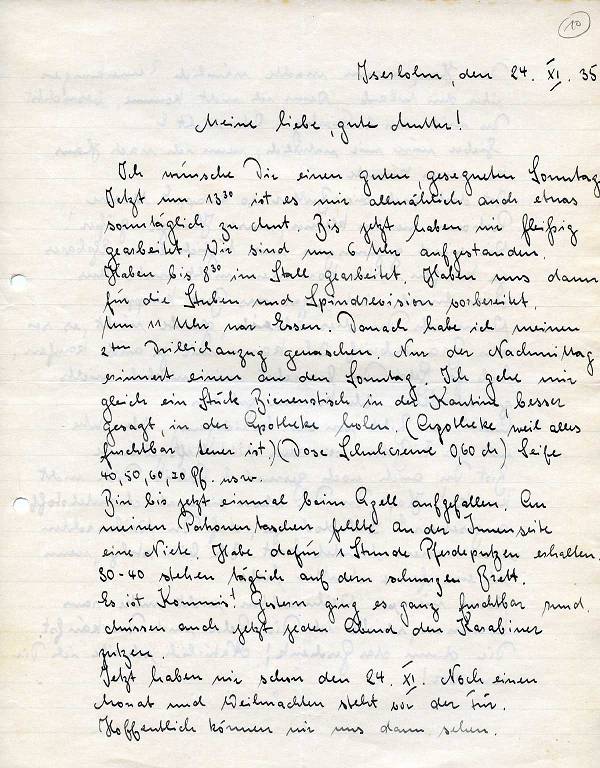 10
Iserlohn, den 24. XI. 35
Meine liebe, gute Mutter!
Ich wünsche Dir einen guten, gesegneten Sonntag
Jetzt um 13³⁰ ist es mir allmählich auch etwas
sonntäglich zu Mut Bis jetzt haben wir fleißig
gearbeitet. Wir sind um 6 Uhr aufgestanden.
Haben bis 8³⁰ im Stall gearbeitet. Haben uns dann
für die Stuben und Spindrevision vorbereitet.
Um 11 Uhr war Essen. Danach habe ich meinen
2ten Drillichanzug gewaschen. Nur der Nachmittag
erinnert einen an den Sonntag. Ich gehe mir
gleich ein Stück Bienenstich in der Kantine, besser
gesagt, in der Apotheke holen. (Apotheke weil alles
furchtbar teuer ist.) (Dose Schuhcreme 0,60 M) Seife
40, 50, 60, 20 Pf. usw.
Bin bis jetzt einmal beim Apell aufgefallen. An
meinen Patronentaschen fehlte an der Innenseite
eine Niete. Habe dafür 1 Stunde Pferdeputzen erhalten.
30-40 stehen täglich auf dem schwarzen Brett.
Es ist Kommis! Gestern ging es ganz furchtbar rund.
Müssen auch jetzt jeden Abend den Karabiner
putzen.
Jetzt haben wir schon den 24. XI. Noch einen
Monat und Weihnachten steht vor der Tür.
Hoffentlich können wir uns dann sehen.